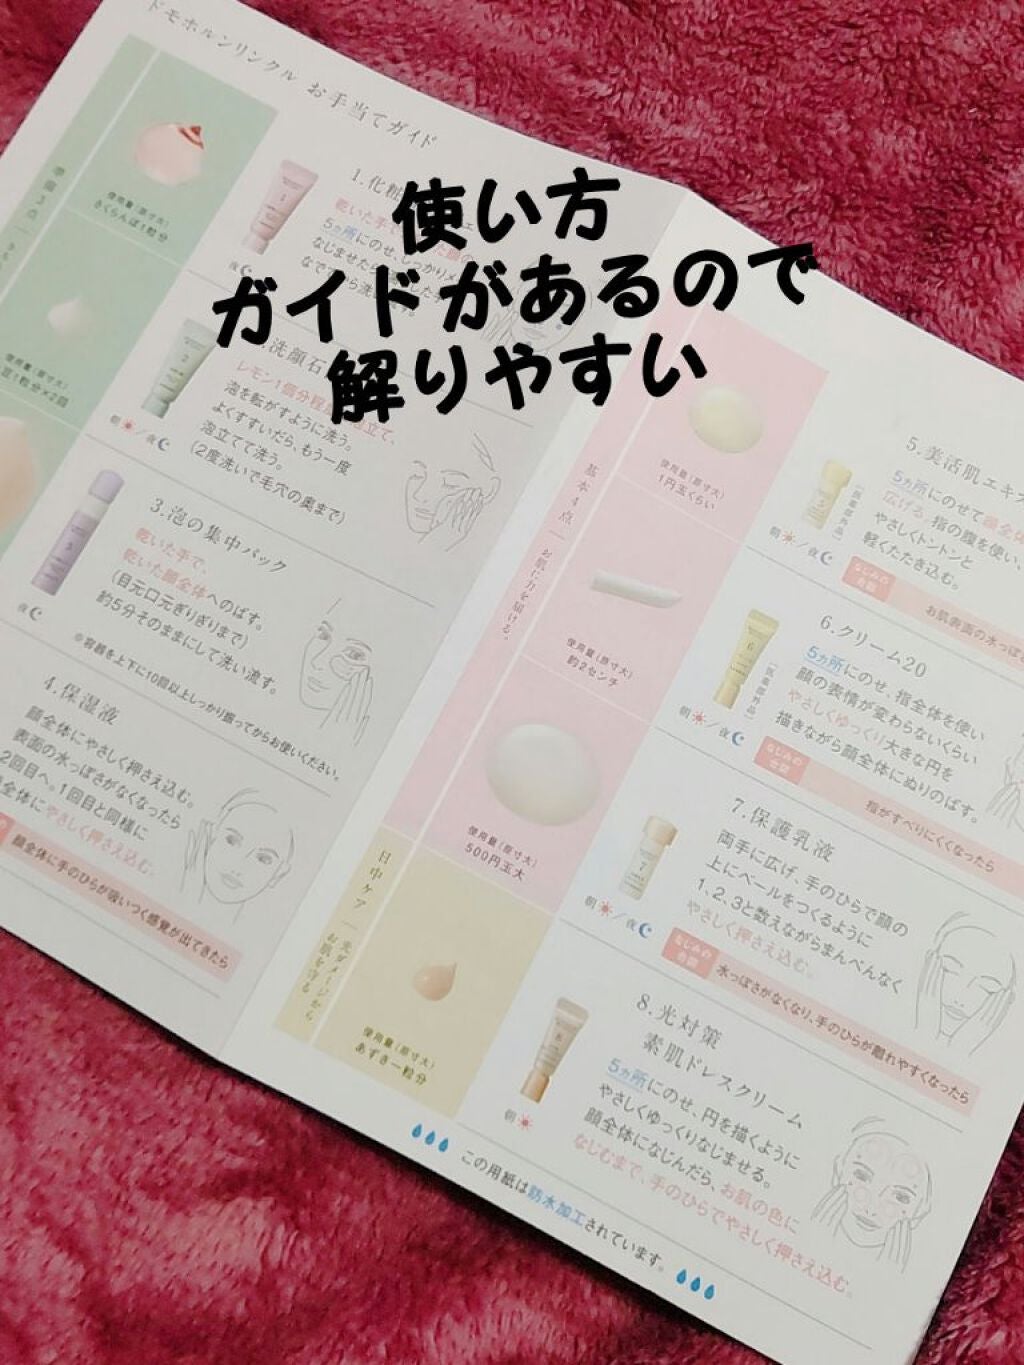 ドモホルンリンクル お手当てガイド
使い方
ガイドがあるので
解りやすい
使用量(原寸大)
さくらんぼ1粒分
1.化粧
乾いた手
5ヵ所にのせ、しっかりメ
なじませたら
夜
使用量(原寸大)
豆1粒分×2回
洗顔石
レモン1個分程
泡立て、
泡を転がすように洗う。
よくすすいだら、もう一度
泡立てて洗う。
(2度洗いで毛穴の奥まで)
朝/夜
3.泡の集中パック
乾いた手で、
乾いた顔全体へのばす。
(目元口元ぎりぎりまで)
約5分そのままにして洗い流す。
※容器を上下に10回以上しっかり振ってからお使いください。
夜
4.保湿液
顔全体にやさしく押さえ込む。
表面の水っぽさがなくなったら
2回目へ。1回目と同様に
全体にやさしく押さえ込む。
顔全体に手のひらが吸いつく感覚が出てきたら
基本4点
お肌に力を届ける。
使用量(原寸大)
1円玉くらい
5.美活肌エキ
5ヵ所にのせて顔全体
広げる。指の腹を使い、
やさしくトントンと
軽くたたき込む。
医薬部外品
朝/夜
なじみの
合図
お肌表面の水っぽ
使用量(原寸大)
約2センチ
6.クリーム20
5ヵ所にのせ、指全体を使い
顔の表情が変わらないくらい
やさしくゆっくり大きな円を
描きながら顔全体にぬりのばす。
医薬部外品
朝/夜
なじみの
合図
指がすべりにくくなったら
使用量(原寸大)
500円玉大
7.保護乳液
両手に広げ、手のひらで顔の
上にベールをつくるように
1、2、3と数えながらまんべんなく
やさしく押さえ込む。
朝/夜
なじみの
合図
水っぽさがなくなり、手のひらが離れやすくなったら
日中ケア
光ダメージから
お肌を守る
使用量(原寸大)
あずき一粒分
8.光対策
素肌ドレスクリーム
5ヵ所にのせ、円を描くように
やさしくゆっくりなじませる。
顔全体になじんだら、お肌の色に
なじむまで、手のひらでやさしく押さえ込む。
朝
この用紙は防水加工されています。